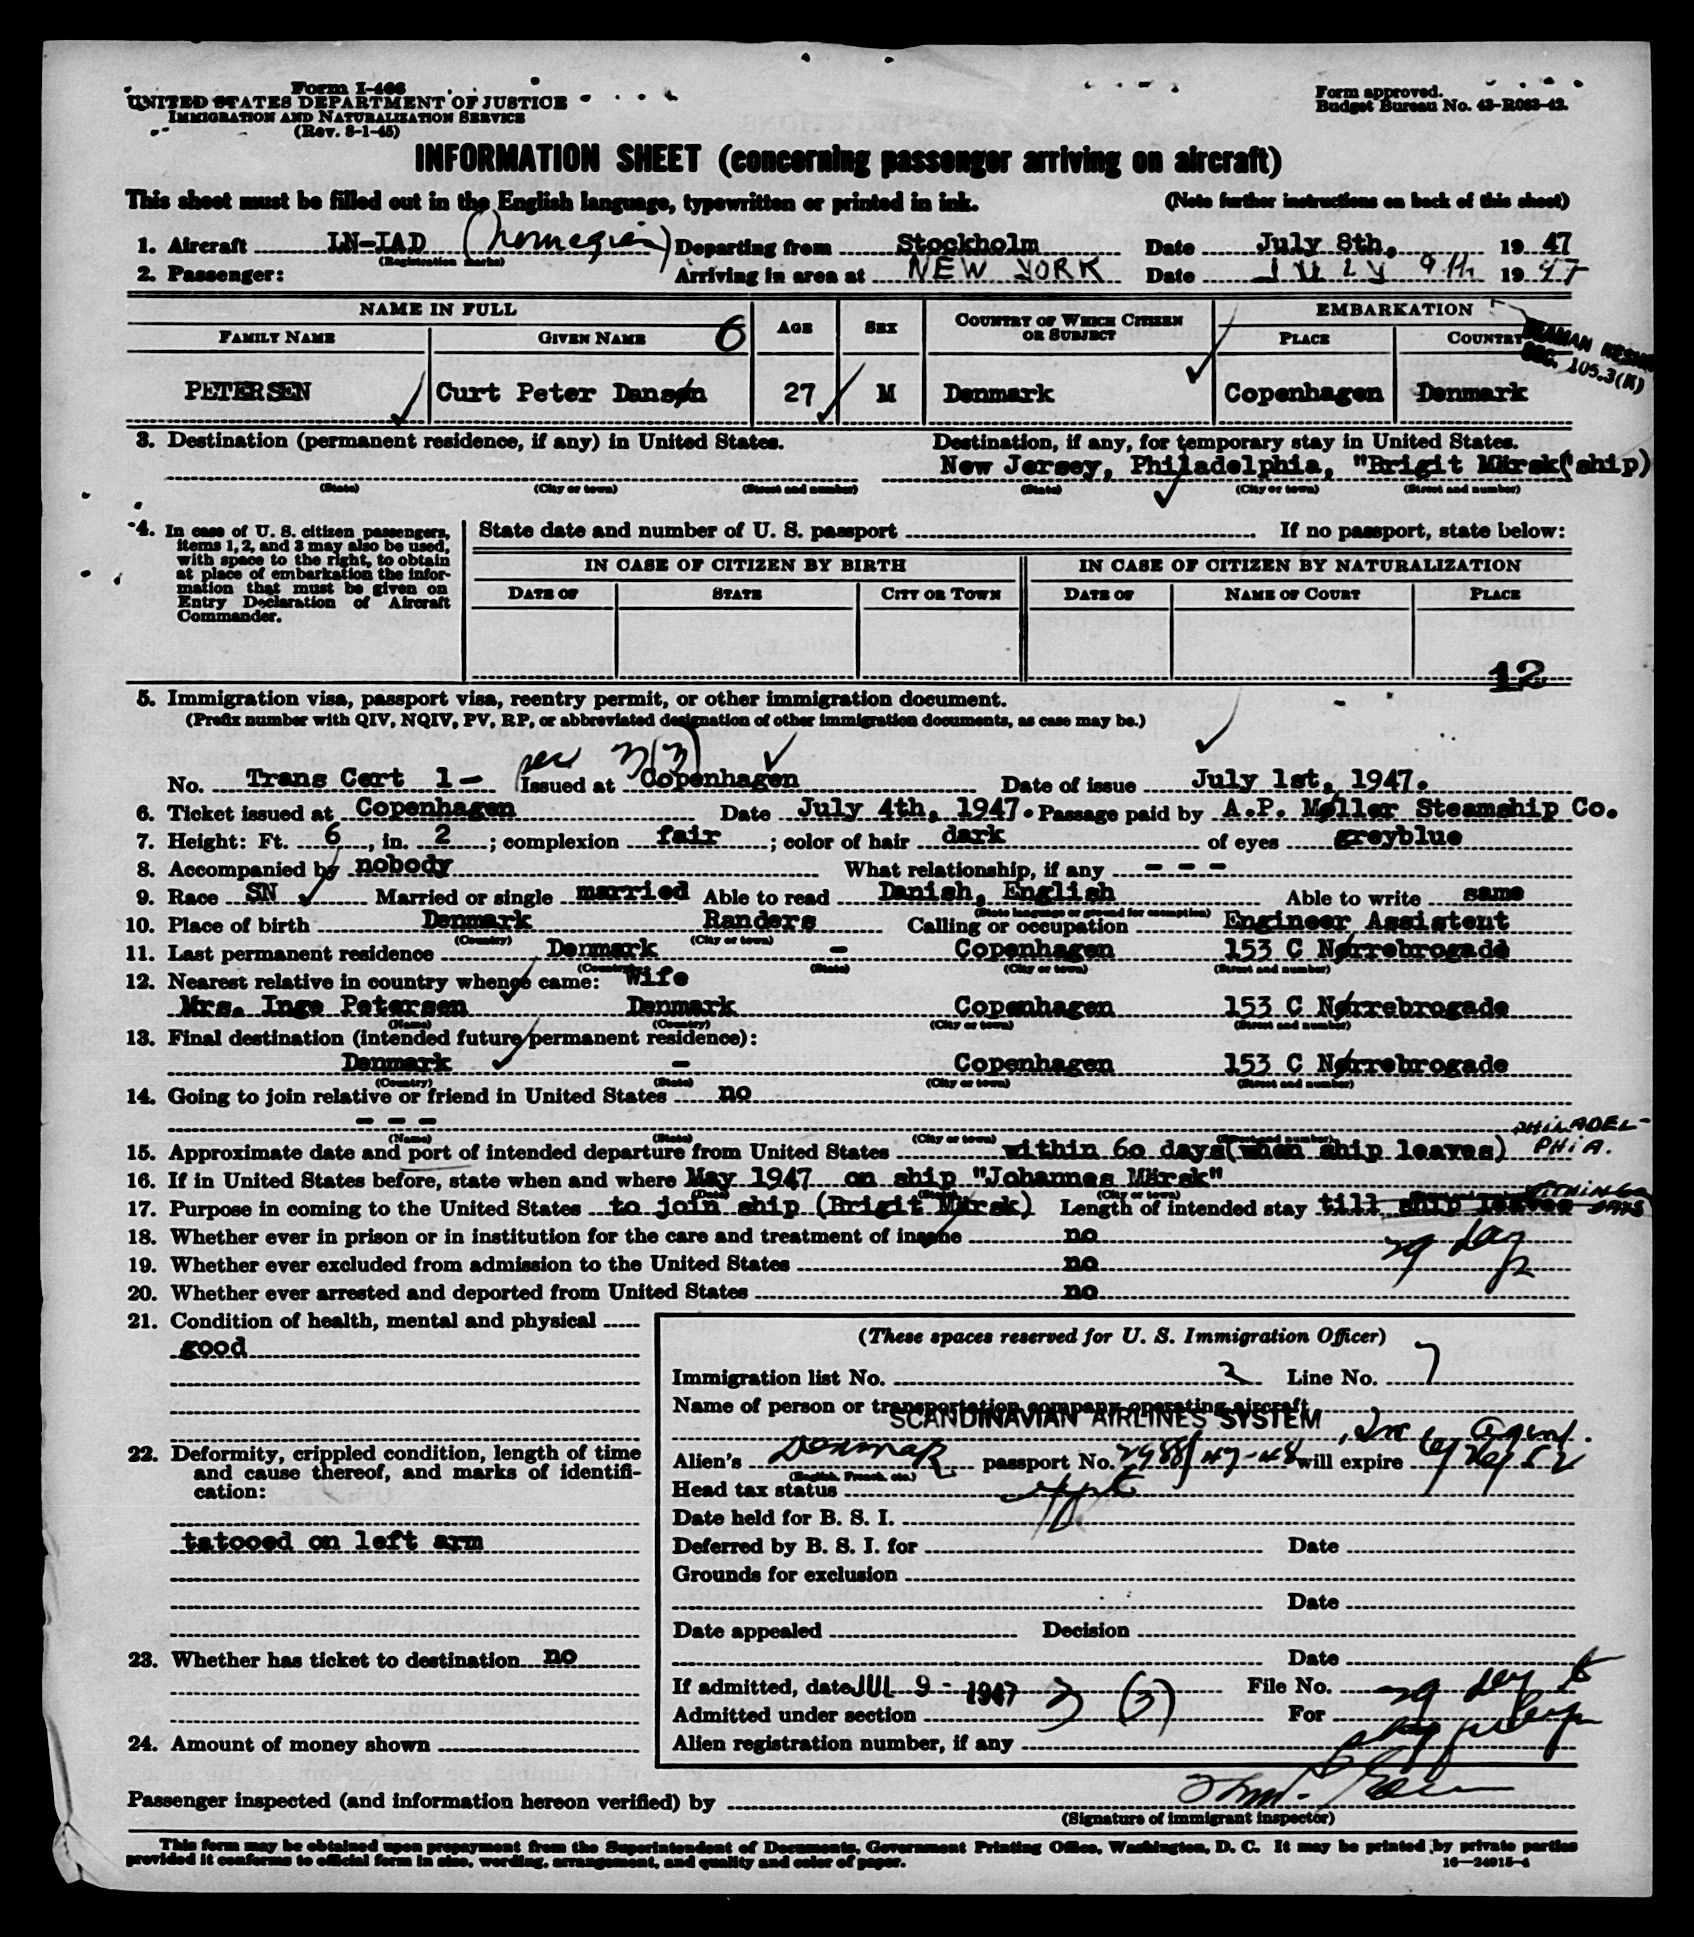 Form I-466
UNITED STATES DEPARTMENT OF JUSTICE
IMMIGRATION AND NATURALIZATION SERVICE
(Rev. 8-1-45)
Form approved.
Budget Bureau No. 43-R083-42.
INFORMATION SHEET (concerning passenger arriving on aircraft)
This sheet must be filled out in the English language, typewritten or printed in ink. (Note further instructions on back of this sheet)
1. Aircraft LN-IAD (Norwegian) Departing from Stockholm Date July 8th, 19 47
(Registration marks)
2. Passenger: Arriving in area at NEW YORK Date JULY 9th 19 47
NAME IN FULL AGE SEX COUNTRY OF WHICH CITIZEN OR SUBJECT EMBARKATION
FAMILY NAME GIVEN NAME 6 PLACE COUNTRY
SEAMAN
SEC. 105.3(K)
PETERSEN Curt Peter Dansøn 27 M Denmark Copenhagen Denmark
3. Destination (permanent residence, if any) in United States. Destination, if any, for temporary stay in United States.
New Jersey, Philadelphia, "Brigit Märsk(ship)
(State) (City or town) (Street and number) (State) (City or town) (Street and number)
4. In case of U. S. citizen passengers, items 1, 2, and 3 may also be used, with space to the right, to obtain at place of embarkation the information that must be given on Entry Declaration of Aircraft Commander.
State date and number of U. S. passport If no passport, state below:
IN CASE OF CITIZEN BY BIRTH IN CASE OF CITIZEN BY NATURALIZATION
DATE OF STATE CITY OR TOWN DATE OF NAME OF COURT PLACE
12
5. Immigration visa, passport visa, reentry permit, or other immigration document.
(Prefix number with QIV, NQIV, PV, RP, or abbreviated designation of other immigration documents, as case may be.)
sec 3(3)
No. Trans Cert 1- Issued at Copenhagen Date of issue July 1st, 1947.
6. Ticket issued at Copenhagen Date July 4th, 1947. Passage paid by A.P. Møller Steamship Co.
7. Height: Ft. 6, in. 2; complexion fair; color of hair dark of eyes greyblue
8. Accompanied by nobody What relationship, if any - - -
9. Race SN Married or single married Able to read Danish, English Able to write same
(State language or ground for exemption)
10. Place of birth Denmark Randers Calling or occupation Engineer Assistent
(Country) (City or town)
11. Last permanent residence Denmark - Copenhagen 153 C Nørrebrogade
(Country) (State) (City or town) (Street and number)
12. Nearest relative in country whence came: Wife
Mrs. Inge Petersen Denmark Copenhagen 153 C Nørrebrogade
(Name) (Country) (City or town) (Street and number)
13. Final destination (intended future permanent residence):
Denmark - Copenhagen 153 C Nørrebrogade
(Country) (State) (City or town) (Street and number)
14. Going to join relative or friend in United States no
- - -
(Name) (State) (City or town) (Street and number)
15. Approximate date and port of intended departure from United States within 60 days(when ship leaves) PHILADELPHIA.
16. If in United States before, state when and where May 1947 on ship "Johannes Märsk"
(Date) (State) (City or town)
17. Purpose in coming to the United States to join ship (Brigit Märsk) Length of intended stay till ship leaves WITHIN 60 DAYS
29 days
18. Whether ever in prison or in institution for the care and treatment of insane no
19. Whether ever excluded from admission to the United States no
20. Whether ever arrested and deported from United States no
21. Condition of health, mental and physical
good
22. Deformity, crippled condition, length of time and cause thereof, and marks of identification:
tatooed on left arm
23. Whether has ticket to destination no
24. Amount of money shown
(These spaces reserved for U. S. Immigration Officer)
Immigration list No. 2 Line No. 7
Name of person or transportation company operating aircraft
SCANDINAVIAN AIRLINES SYSTEM, Inc Agent.
Alien's Denmark passport No. 2988/47-48 will expire
(English, French, etc.)
Head tax status
Date held for B. S. I.
Deferred by B. S. I. for Date
Grounds for exclusion
Date
Date appealed Decision
Date
If admitted, date JUL 9 - 1947 File No.
Admitted under section 3 (3) For 29 days
Alien registration number, if any
Passenger inspected (and information hereon verified) by
(Signature of immigrant inspector)
This form may be obtained upon prepayment from the Superintendent of Documents, Government Printing Office, Washington, D. C. It may be printed by private parties
provided it conforms to official form in size, wording, arrangement, and quality and color of paper. 16—24915-4